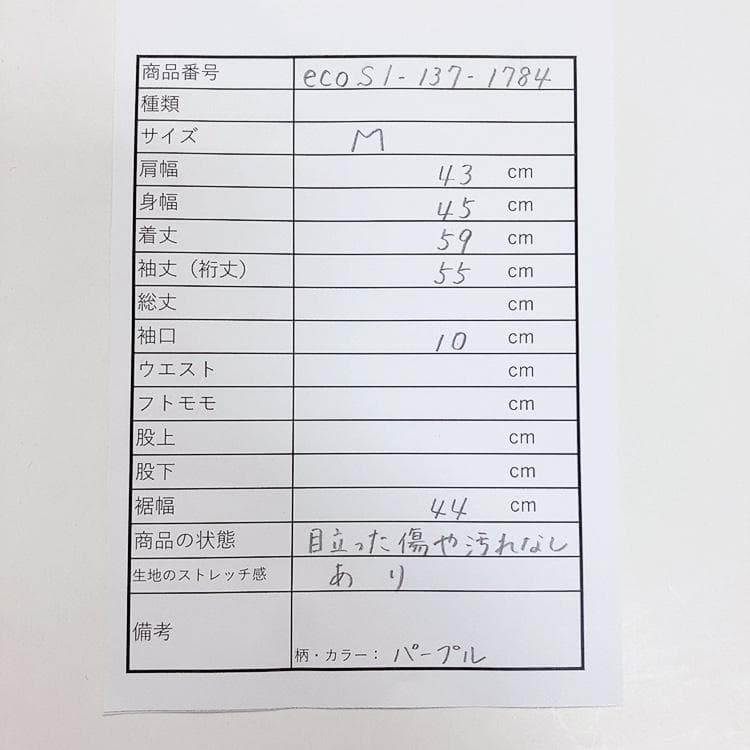 商品番号 ecoS1-137-1784
種類
サイズ M
肩幅 43 cm
身幅 45 cm
着丈 59 cm
袖丈（裄丈） 55 cm
総丈 cm
袖口 10 cm
ウエスト cm
フトモモ cm
股上 cm
股下 cm
裾幅 44 cm
商品の状態 目立った傷や汚れなし
生地のストレッチ感 あり
備考
柄・カラー： パープル